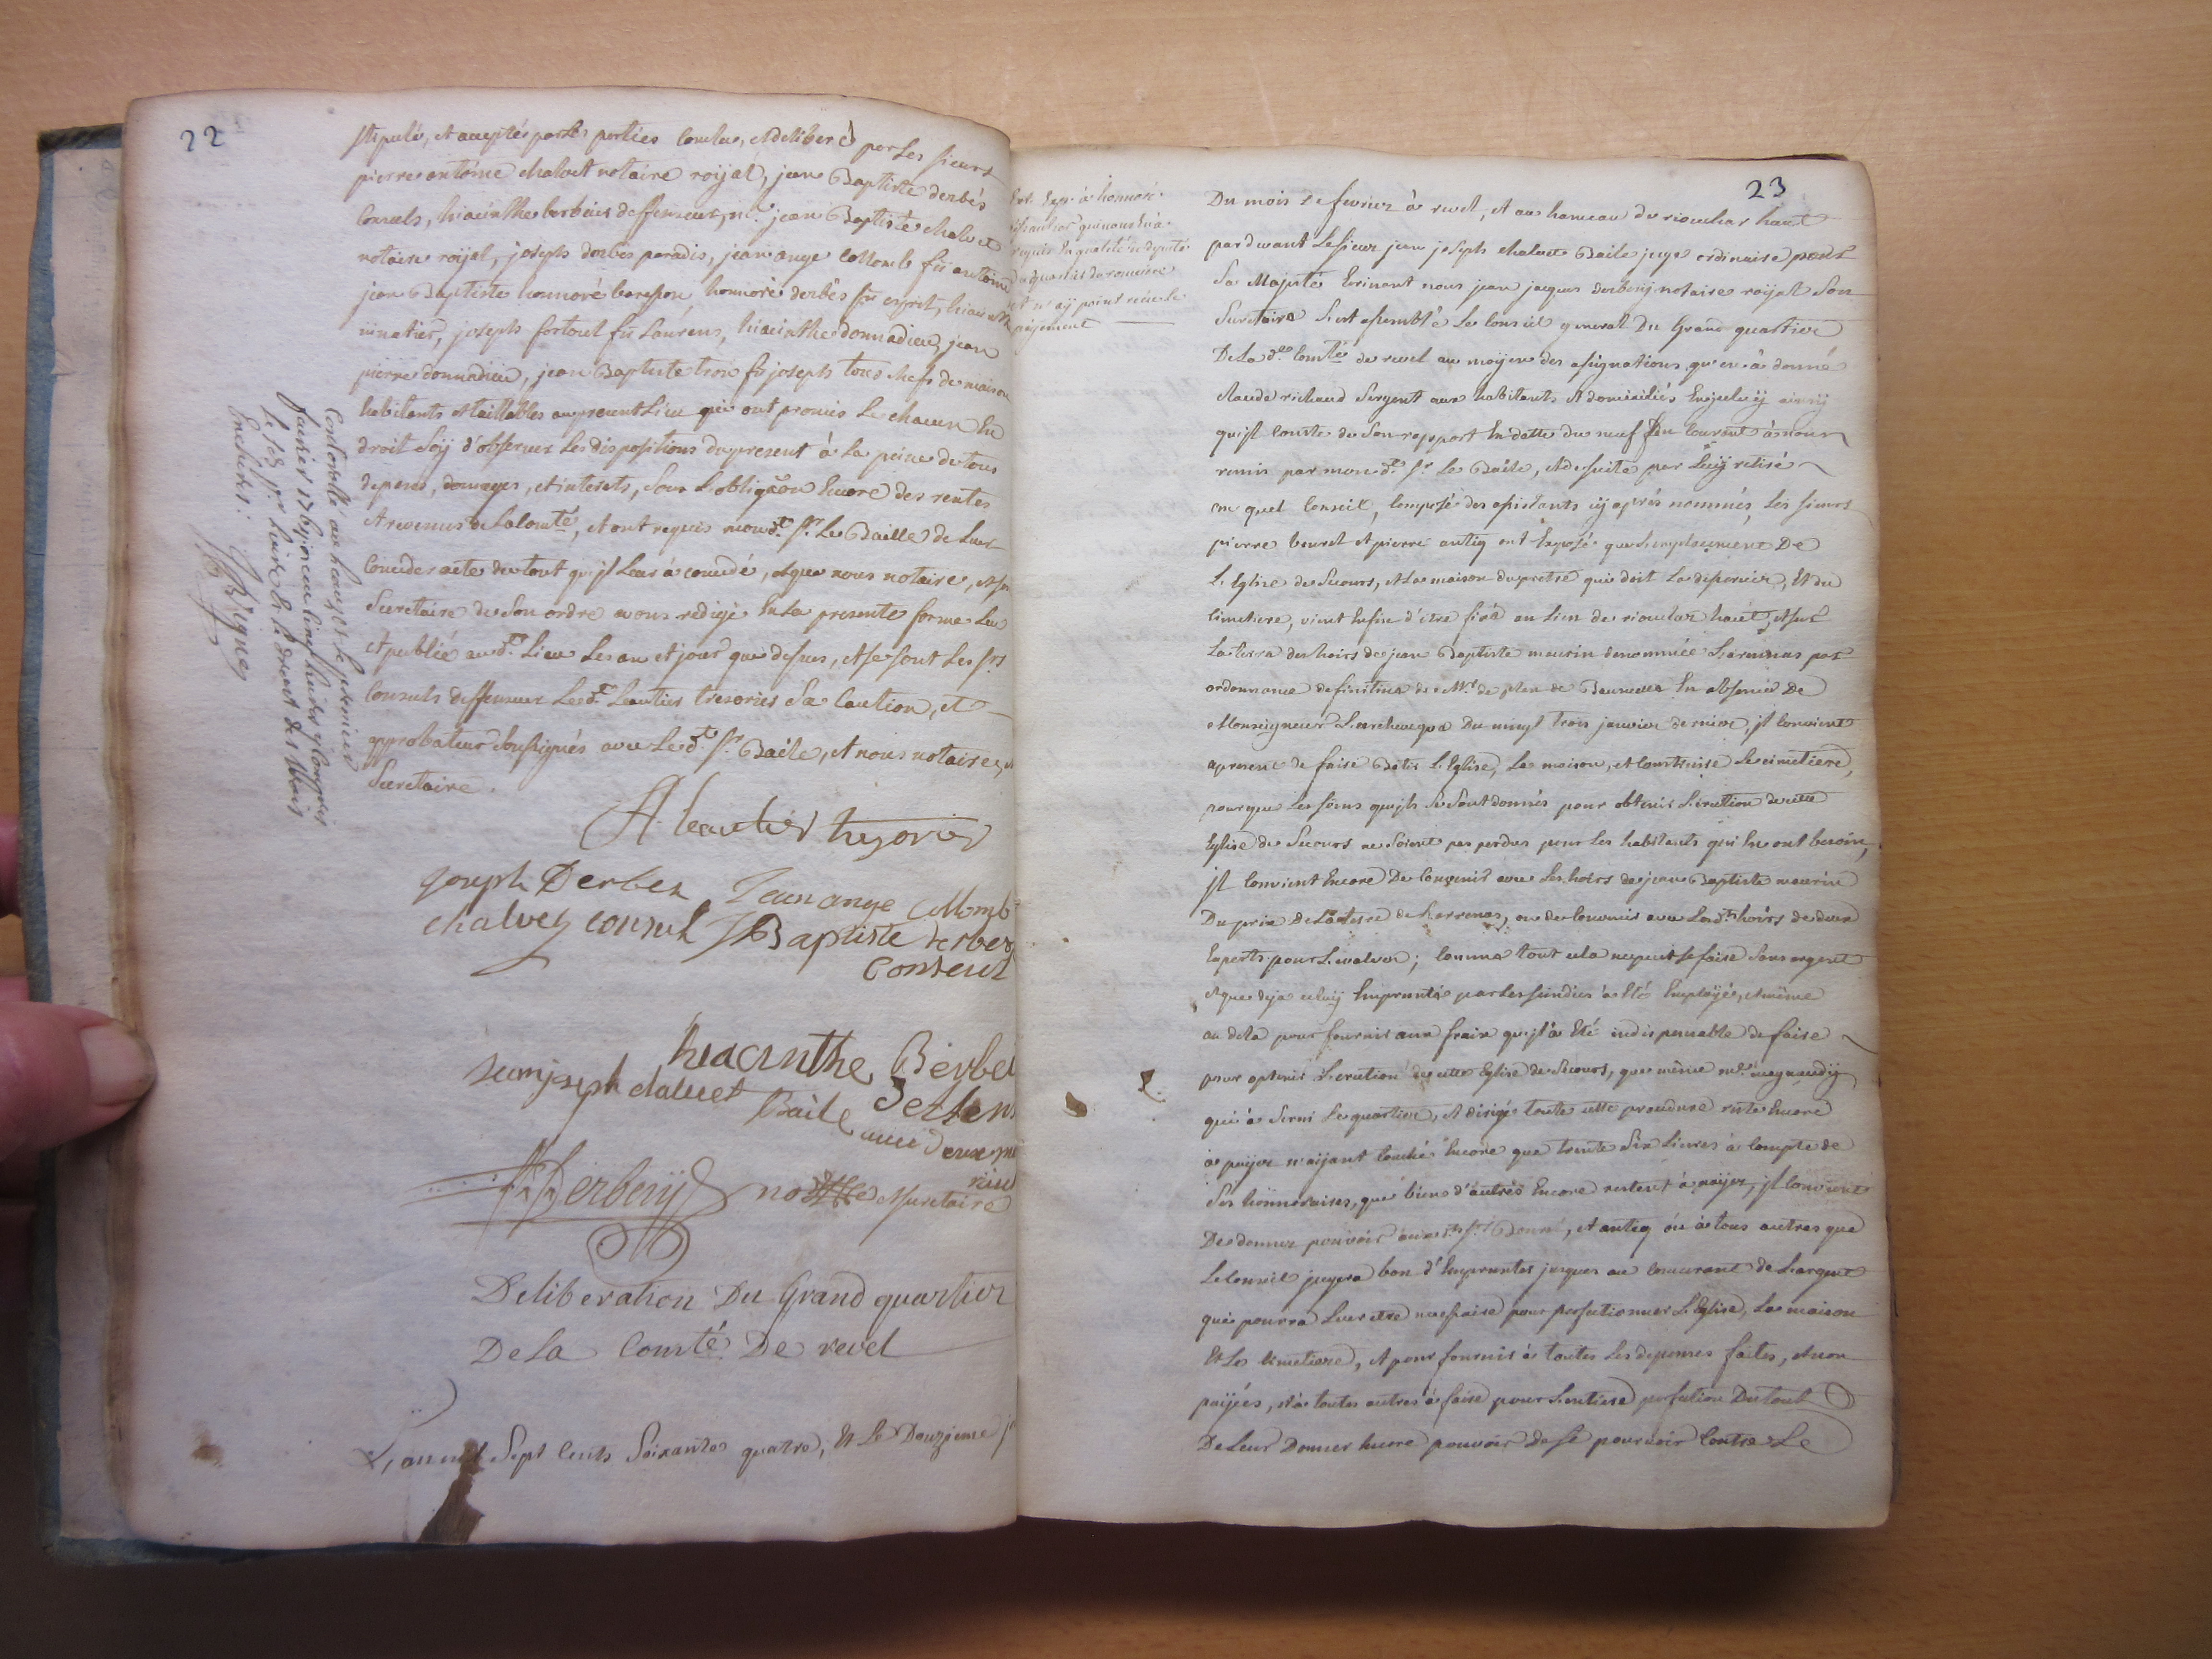 22
stipulé, et acceptés par les parties conclus, et deliberé par les sieurs
pierre antoine chalvet notaire roijal, jean Baptiste derbés
Consuls, hiacinthe berbeier deffenseur, me. jean Baptiste chalvet
notaire roijal, joseph derbes paradis, jean ange collomb fu antoine
jean Baptiste honnoré, honnoré derbés fu esprit, hiacinthe
joseph fortoul fu Laurens, hiacinthe donnadieu, jean
pierre donnadieu, jean Baptiste tron fu joseph tous chefs de maison
habitants et taillables au present Lieu qui ont promis Le chacun En
droit soij d'observer Les dispositions du present à La peine de tous
depens, domages, et interets, sous L'obligãon Encore des rentes
et revenus de La comté, et ont requis mond. Sr. Le Baille de Leur
Conceder acte de tout qu'jl Leur à concedé, et que nous notaire, et son
Secretaire de Son ordre avons redigé En La presente forme Leu
et publié aud. Lieu Les an et jour que dessus, et se sont Les srs
Consuls deffenseur Led. Leautier tresorier Sa Caution, et
approbateur soussignés avec Led. Sr. Baile, et nous notaire, et
Secretaire.
A. leautier tresorier
joseph Derbes Jean ange Collomb
chalvet consul JBaptiste derbes
Conseul
hiacinthe Berbei
jean joseph chalvet
Baile
Derbeny no.re et secretaire
Controllé au
fevrier 1764
Le droit des
Encheres:
Deliberation Du Grand quartier
De La Comté De revel
L'an mil Sept Cents Soixante quatre, Et Le Douzieme j
23
à honnoré
qui nous l'à
En qualité de deputé
du quartier
et n'aij point
paijement
Du mois de fevrier à revel, et au hameau du rioclar haut
pardevant Le sieur jean joseph chalvet Baile juge ordinaire pour
Sa Majesté Ecrivant nous jean jacques derbenij notaire roijal Son
Secretaire S'est assemblé Le Conseil general Du Grand quartier
De La de. Comté de revel au moijen des assignations qu'en à donné
Claude richaud Sergent aux habitants et domiciliés En iceluij ainsij
qu'jl Conste de Son rapport En datte du neuf du Courant à nous
remis par mond. Sr. Le Baile, et de suite par Luij retiré
au quel Conseil, Composé des assistants cij aprés nommés, Les sieurs
pierre bouret et pierre antiq ont Exposé que L'emplacement De
L'Eglise de Secours, et La maison du pretre qui doit La desservir, Et du
Cimetiere, vient Enfin d'etre fixé au Lieu de rioclar haut, et sur
La terre des hoirs de jean Baptiste maurin denommée Larrenas par
ordonnance definitive de Mr. de plan de En absence De
Monseigneur L'archeveque Du vingt trois janvier dernier, jl Convient
apresent de faire Batir L'Eglise, La maison, et Construire Le cimetiere,
pour que Les soins qu'jls Se Sont donnés pour obtenir L'erection de cette
Eglise de Secours ne Soient pas perdus pour Les habitants qui En ont besoin,
jl Convient Encore De Convenir avec Les hoirs de jean Baptiste maurin
Du prix De La terre de Larrenas, ou de Convenir avec Lesd. hoirs de deux
Experts pour L'evaluer; Comme tout cela ne peut se faire Sans argent
et que deja celuij Emprunté par Les sindics à Eté Emploijé, et même
au dela pour fournir aux fraix qu'jl à Eté indispensable de faire
pour obtenir L'erection de cette Eglise de Secours, que même me. meynaudij
qui à Servi Le quartier, et dirigé toute cette procedure reste Encore
à paijer n'aijant touché Encore que trente Six Livres à Compte de
Ses honnoraires, que bien d'autres Encore restent à paijer, jl Convient
De donner pouvoir auxd. Srs. Bouret, et antiq ou à tous autres que
Le Conseil jugera bon d'Emprunter jusques au Concurant de L'argent
qui pourra Leur etre necessaire pour perfectionner L'Eglise, La maison
Et Le Cimetiere, et pour fournir à toutes Les depenses faites, et non
paijées, et à toutes autres à faire pour L'entiere perfection Du tout
De Leur Donner Encore pouvoir de se pourvoir Contre Le